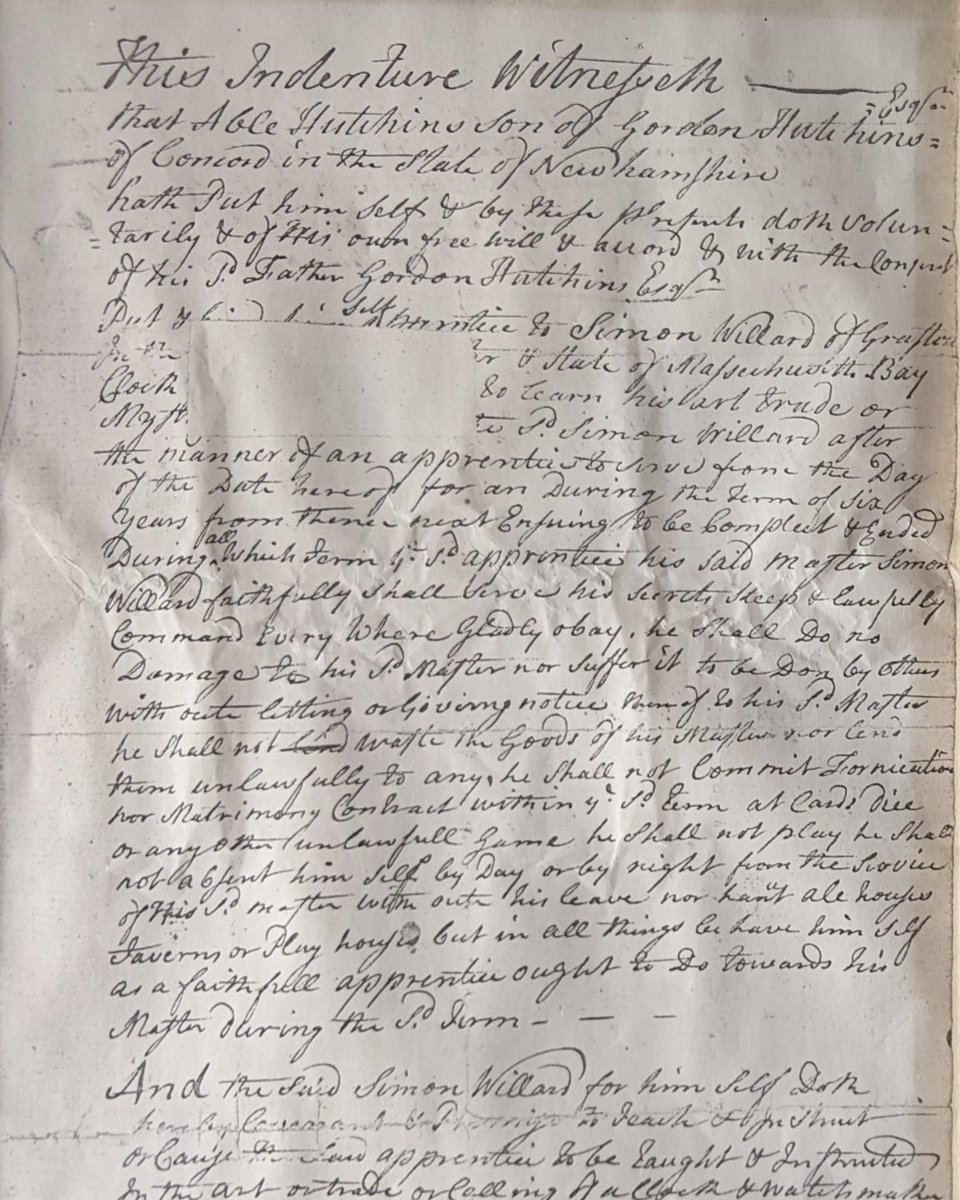 This Indenture Witnesseth
Esqr
that Able Hutchins son of Gordon Hutchins=
of Concord in the State of Newhamshire
hath Put him self & by these presents doth volun=
=tarily & of His own free will & accord & with the Consent
of his Sd. Father Gordon Hutchins Esqr
Put self apprentice to Simon Willard of Grafton
In the & State of Massachusetts Bay
Clock to Learn his art trade or
Myst Sd. Simon Willard after
the manner of an apprentice to serve from the Day
of the Date here of for an During the term of six
years from thence next Ensuing to be Compleet & Ended
During all Which term ye. Sd apprentice his said master Simon
Willard faithfully shall serve his secrets keep & lawfully
Command Every Where Gladly obay, he shall Do no
Damage to his Sd. Master nor suffer it to be Don by others
with oute letting or Giveing notice there of to his Sd. Master
he shall not lend waste the Goods of his Master nor lend
them unlawfully to any, he shall not Commit Fornication
nor Matrimony Contract within ye. Sd. term at Cards Dice
or any other unlawfull Game he shall not play he shall
not absent him self by Day or by night from the Service
of His Sd. master with oute his leave nor hant ale houses
Taverns or Play houses but in all things be have him self
as a faithfull apprentice ought to Do towards his
Master during the Sd. Term - — -
And the said Simon Willard for him self Doth
hereby Covenant & Promise to teach & In struct
or Cause the said apprentice to be taught & Instructed
In the art or trade or Calling of a Clock & watch